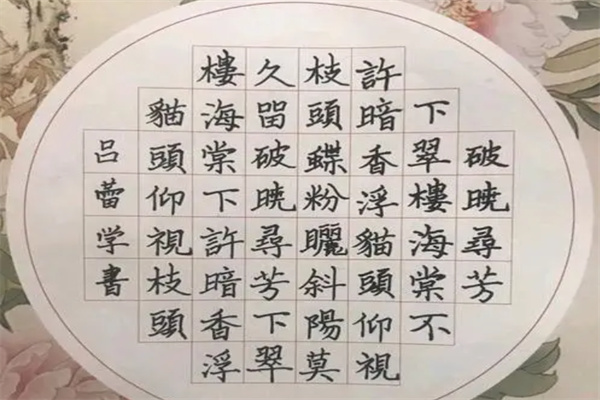 破暁尋芳
下翠樓海棠不
許暗香浮貓頭仰視
枝頭蝶粉曬斜陽莫
久畱破暁尋芳下翠
樓海棠下許暗香浮
貓頭仰視枝頭
吕蕾学書